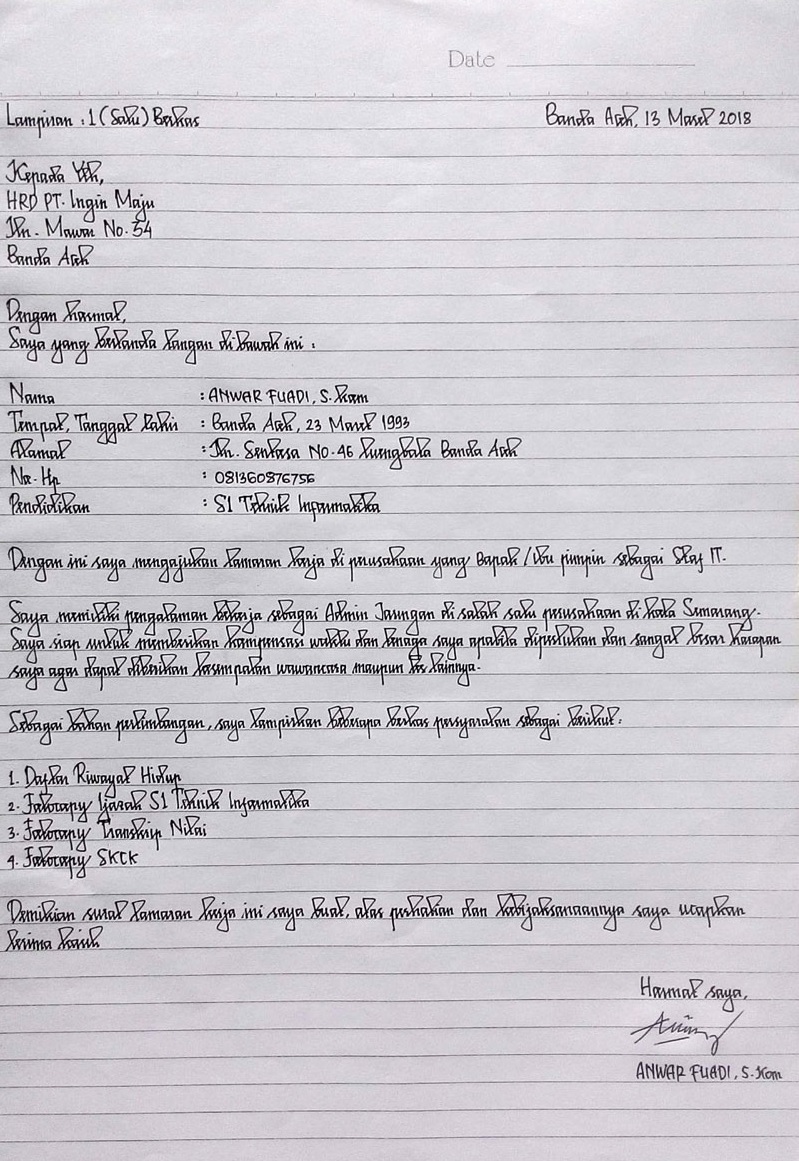 Date
Lampiran : 1 (Satu) Berkas
Banda Aceh, 13 Maret 2018
Kepada Yth,
HRD PT. Ingin Maju
Jln. Mawar No. 54
Banda Aceh
Dengan hormat,
Saya yang bertanda tangan di bawah ini :
Nama : ANWAR FUADI, S.Kom
Tempat, Tanggal Lahir : Banda Aceh, 23 Maret 1993
Alamat : Jln. Sentosa No.46 Luengbata Banda Aceh
No. Hp : 081360876756
Pendidikan : S1 Teknik Informatika
Dengan ini saya mengajukan lamaran kerja di perusahaan yang Bapak/Ibu pimpin sebagai Staf IT.
Saya memiliki pengalaman bekerja sebagai Admin Jaringan di salah satu perusahaan di kota Semarang.
Saya siap untuk memberikan kompensasi waktu dan tenaga saya apabila diperlukan dan sangat besar harapan
saya agar dapat diberikan kesempatan wawancara maupun tes lainnya.
Sebagai bahan pertimbangan, saya lampirkan beberapa berkas persyaratan sebagai berikut :
1. Daftar Riwayat Hidup
2. Fotocopy Ijazah S1 Teknik Informatika
3. Fotocopy Transkip Nilai
4. Fotocopy SKCK
Demikian surat lamaran kerja ini saya buat, atas perhatian dan kebijaksanaannya saya ucapkan
terima kasih
Hormat saya,
ANWAR FUADI, S.Kom